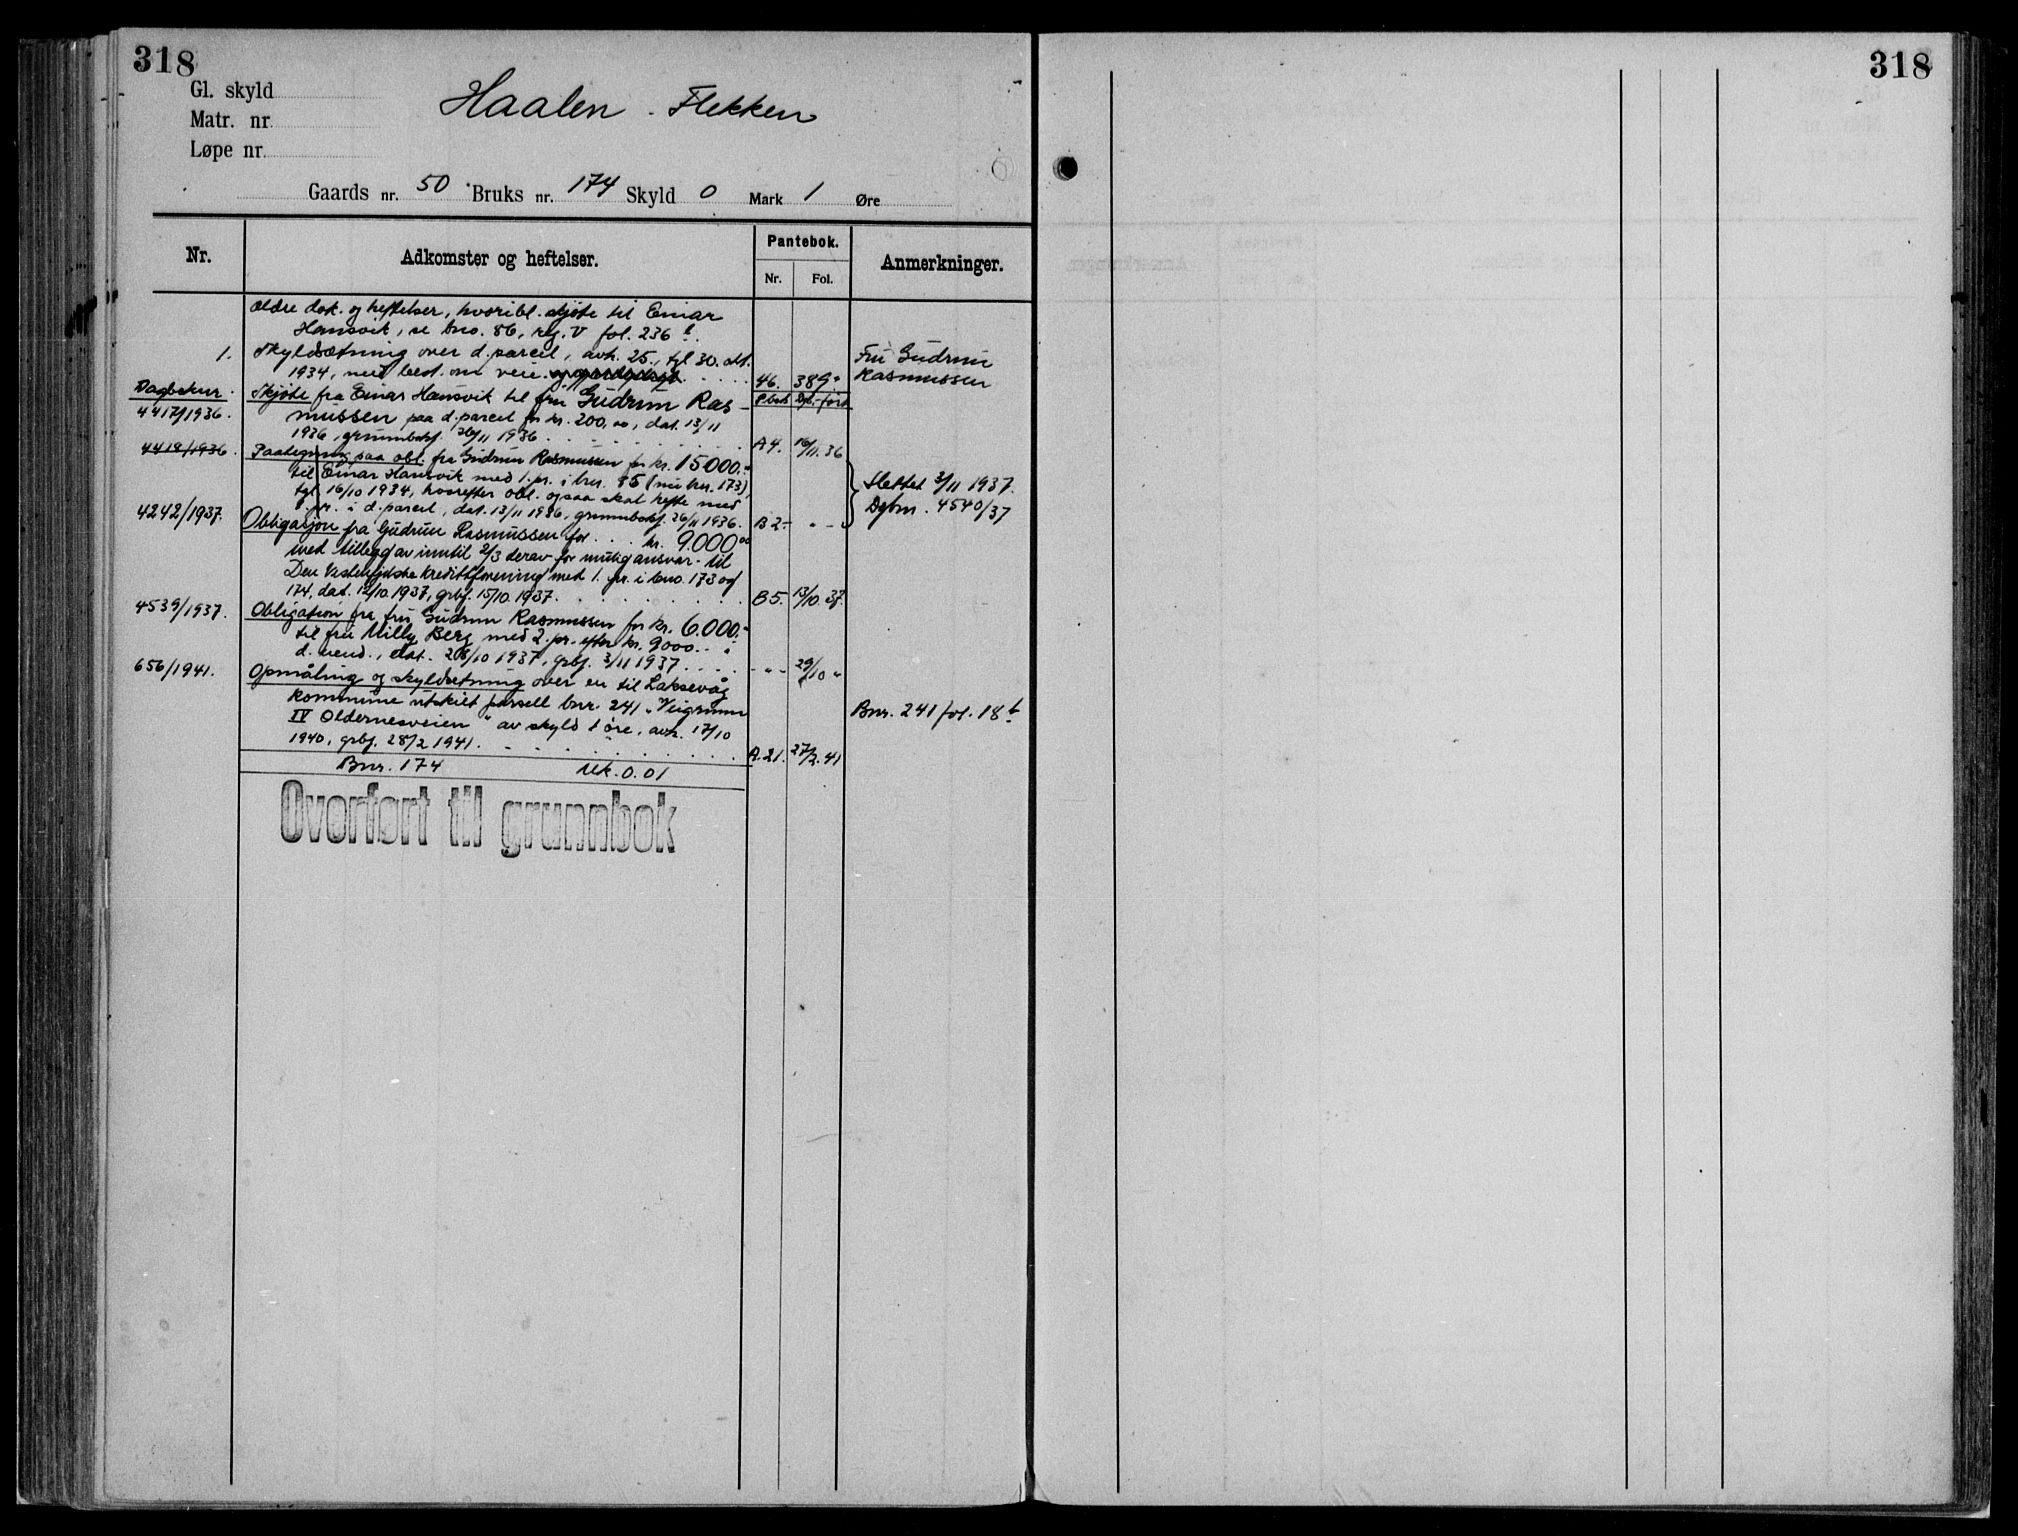 318
318
Gl. skyld
Matr. nr.
Løpe nr.
Haalen - Flekken
Gaards nr. 50 Bruks nr. 174 Skyld 0 Mark 1 Øre
Nr.
Adkomster og heftelser.
Pantebok.
Nr.
Fol.
Anmerkninger.
ældre dok. og heftelser, hvoribl. skjøte til Einar
Hansvik, se bno. 86, reg. V fol. 236 b.
1. Skyldsætning over d. parcel, avh. 25., tgl 30. okt.
1934, med best. om veie 46. 389.
Fru Gudrun
Rasmussen
Dagboknr. Skjøte fra Einar Hansvik til fru Gudrun Ras-
4417/1936. mussen paa d. parcel for kr. 200,00, dat. 13/11
1936, grunnboksf. 26/11 1936. A4. 16/11.36
4418/1936. Paategning paa obl. fra Gudrun Rasmussen for kr. 15000.-
til Einar Hansvik med 1. pr. i bnr. 85 (nu bnr. 173),
tgl. 16/10 1934, hvorefter obl. ogsaa skal hefte med
1. pr. i d. parcel, dat. 13/11 1936, grunnboksf. 26/11 1936. B2. - " -
Slettet 3/11 1937.
Dgbnr. 4540/37
4242/1937. Obligasjon fra Gudrun Rasmussen for kr. 9.000 00
med tillegg av inntil 2/3 derav for mulig ansvar - til
Den Vestenfjelske Kredittforening med 1. pr. i bno. 173 og
174, dat. 12/10.1937, grbf. 15/10.1937. B5. 13/10.37.
4539/1937. Obligation fra fru Gudrun Rasmussen for kr. 6.000.-
til fru Milly Berg med 2. pr. efter kr. 9000.- i
d. eiend., dat. 28/10 1937, grbf. 3/11 1937. - " - 29/10 "
656/1941. Opmåling og skyldsetning over en til Laksevåg
kommune utskilt parsell bnr. 241 "Veigrunn
IV Oldernesveien" av skyld 1 øre, avh. 17/10
1940, grbf. 28/2 1941. A.21. 27/2.41
Bnr. 241 fol. 18 b
Bnr. 174 mk. 0.01
Overført til grunnbok